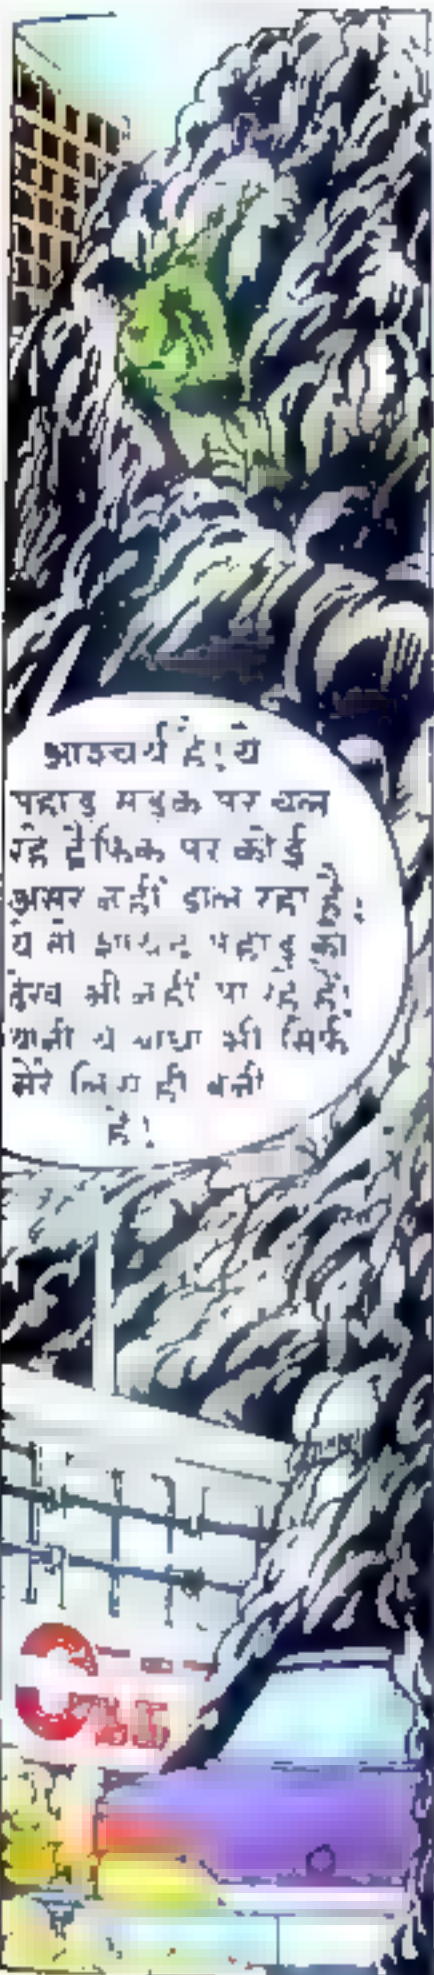 आश्चर्य है! ये
पहाड़ सड़क पर चल
रहे ट्रैफिक पर कोई
असर नहीं डाल रहा है,
ये तो शायद पहाड़ को
देख भी नहीं पा रहे हैं!
यानी ये बाधा भी सिर्फ
मेरे लिए ही बनी
है!